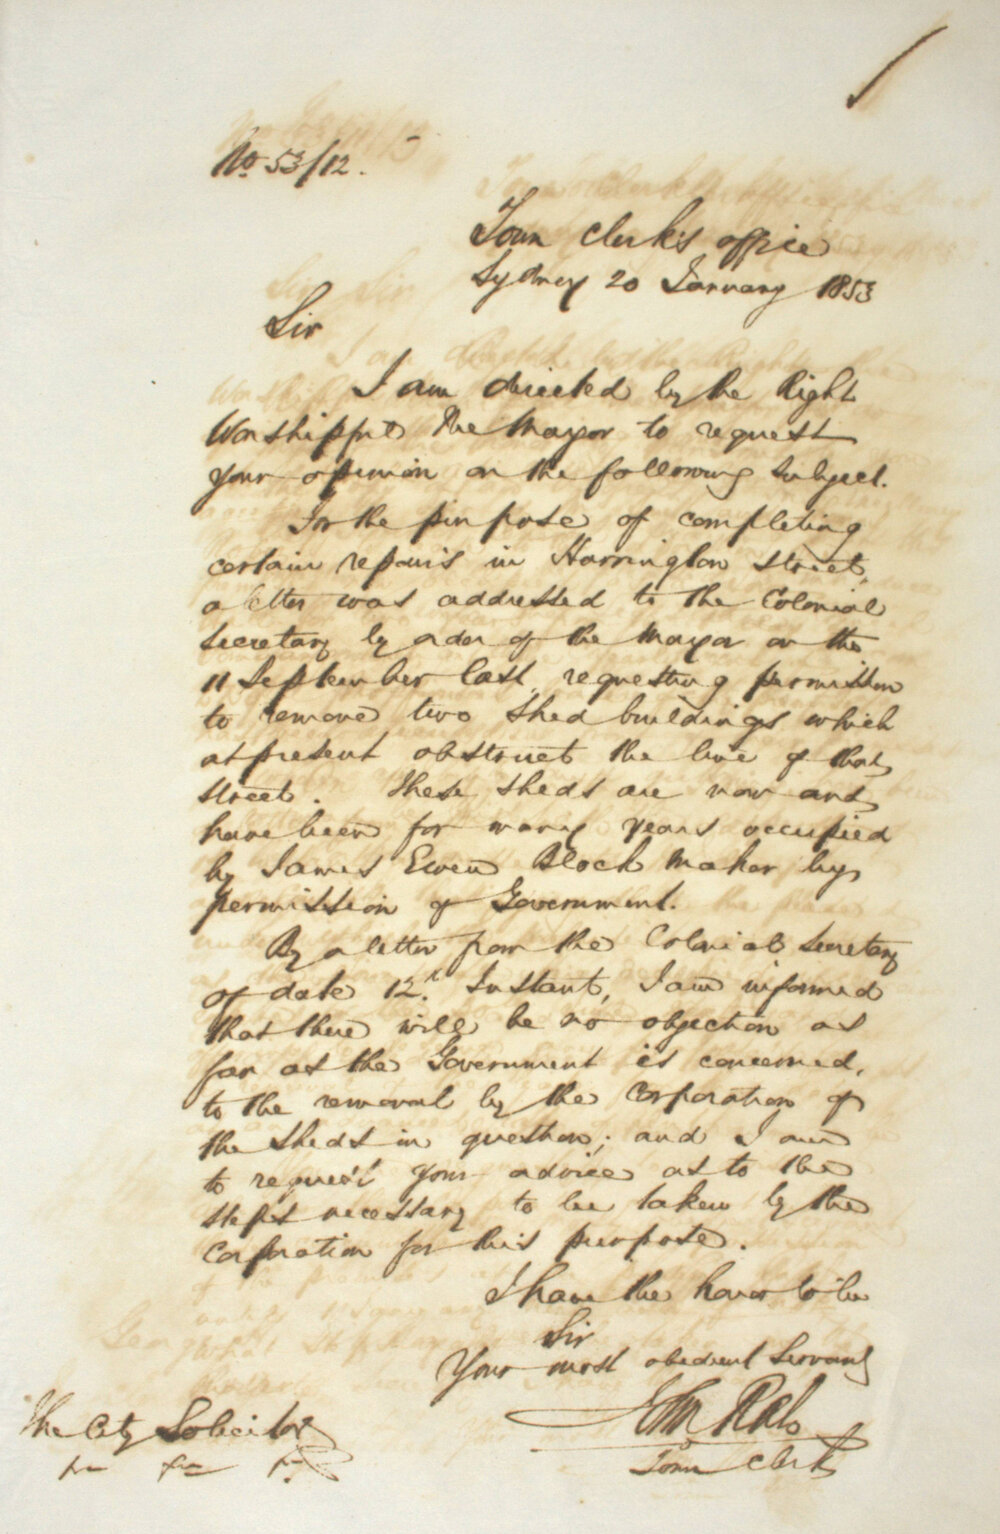 No 53/12.
Town Clerk's office
Sydney 20 January 1853
Sir
I am directed by the Right
Worshipful the Mayor to request
your opinion on the following subject.
For the purpose of completing
certain repairs in Harrington Street,
a letter was addressed to the Colonial
Secretary by order of the Mayor on the
11 September last, requesting permission
to remove two shed buildings which
at present obstruct the line of that
street. These sheds are now and
have been for many years occupied
by James Ewen Block Maker by
permission of Government.
By a letter from the Colonial Secretary
of date 12th Instant, I am informed
that there will be no objection as
far as the Government is concerned,
to the removal by the Corporation of
the sheds in question; and I am
to request your advice as to the
steps necessary to be taken by the
Corporation for this purpose.
I have the honor to be
Sir
Your most obedient Servant
John Rae
Town Clerk
The City Solicitor